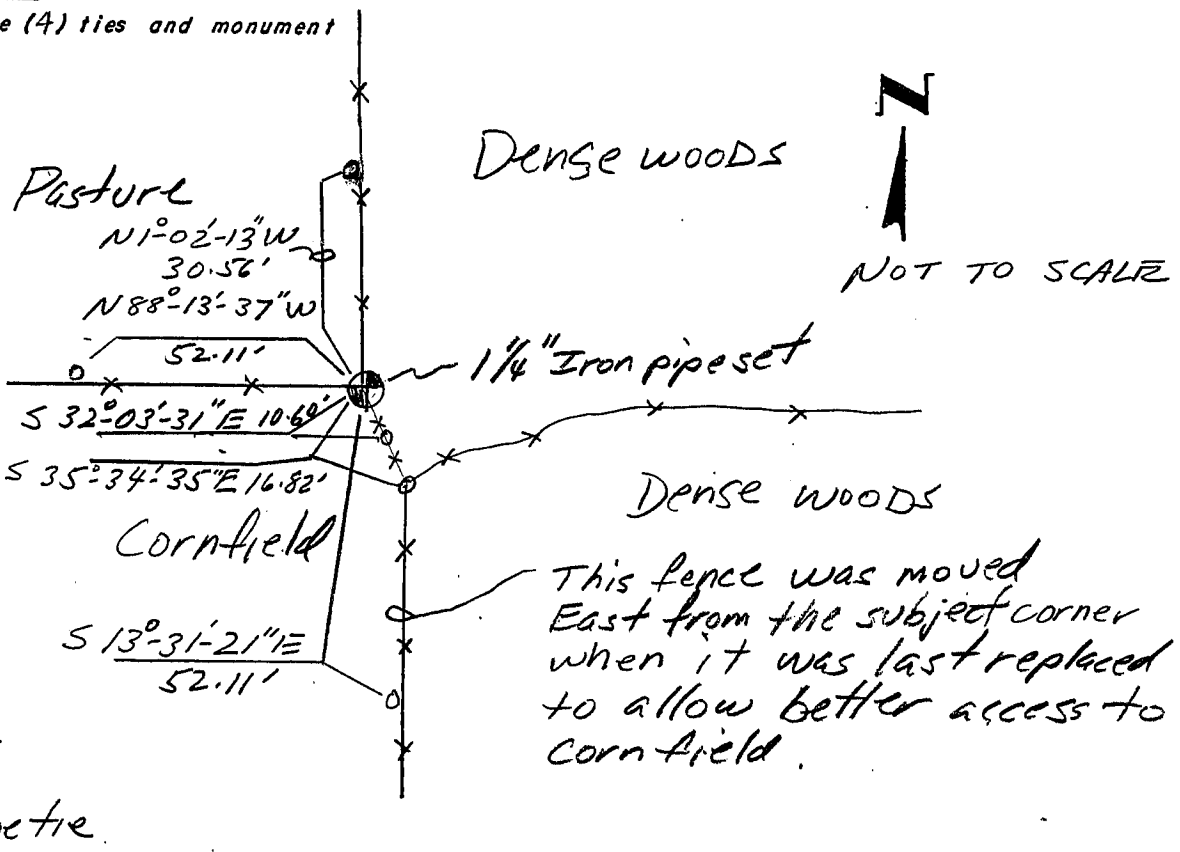 e (4) ties and monument
N
Dense woods
Pasture
N1°-02'-13"W
30.56'
NOT TO SCALE
N88°-13'-37"W
52.11'
1 1/4" Iron pipe set
S 32°-03'-31"E 10.60'
S 35°-34'-35"E 16.82'
Dense woods
Cornfield
This fence was moved
East from the subject corner
when it was last replaced
to allow better access to
cornfield.
S 13°-31-21"E
52.11'
tie